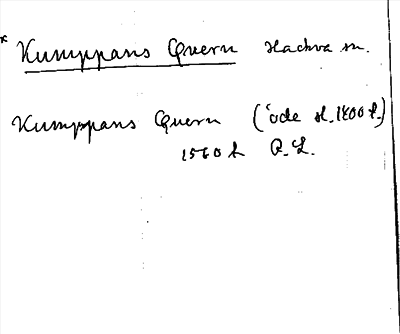 * Kumppans Quern Hackva sn.
Kumppans Quern (öde sl. 1800 t.)
1560 h R. L.